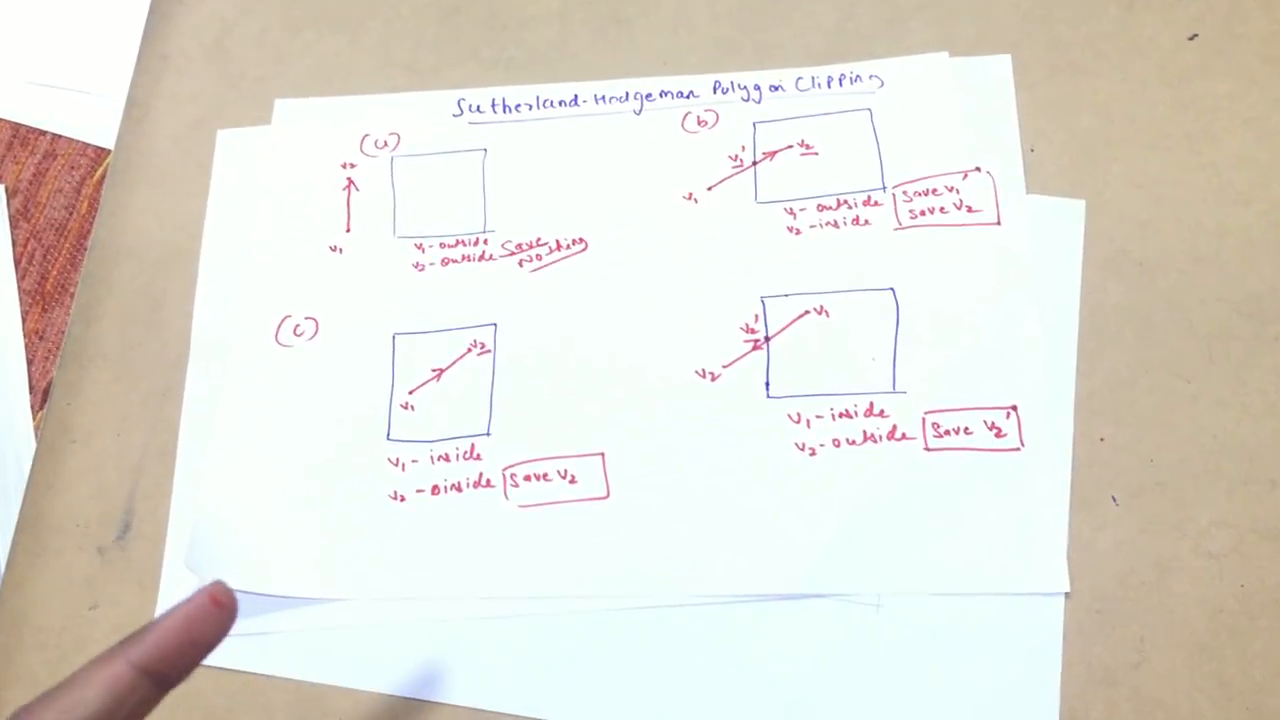 Sutherland-Hodgeman Polygon Clipping
(a)
V2
V1
V1- outside
V2- outside
Save
Nothing
(b)
V1'
V2
V1
V1- outside
V2- inside
Save V1'
Save V2
(c)
V2
V1
V1- inside
V2- oinside
Save V2
V2'
V1
V2
V1- inside
V2- outside
Save V2'